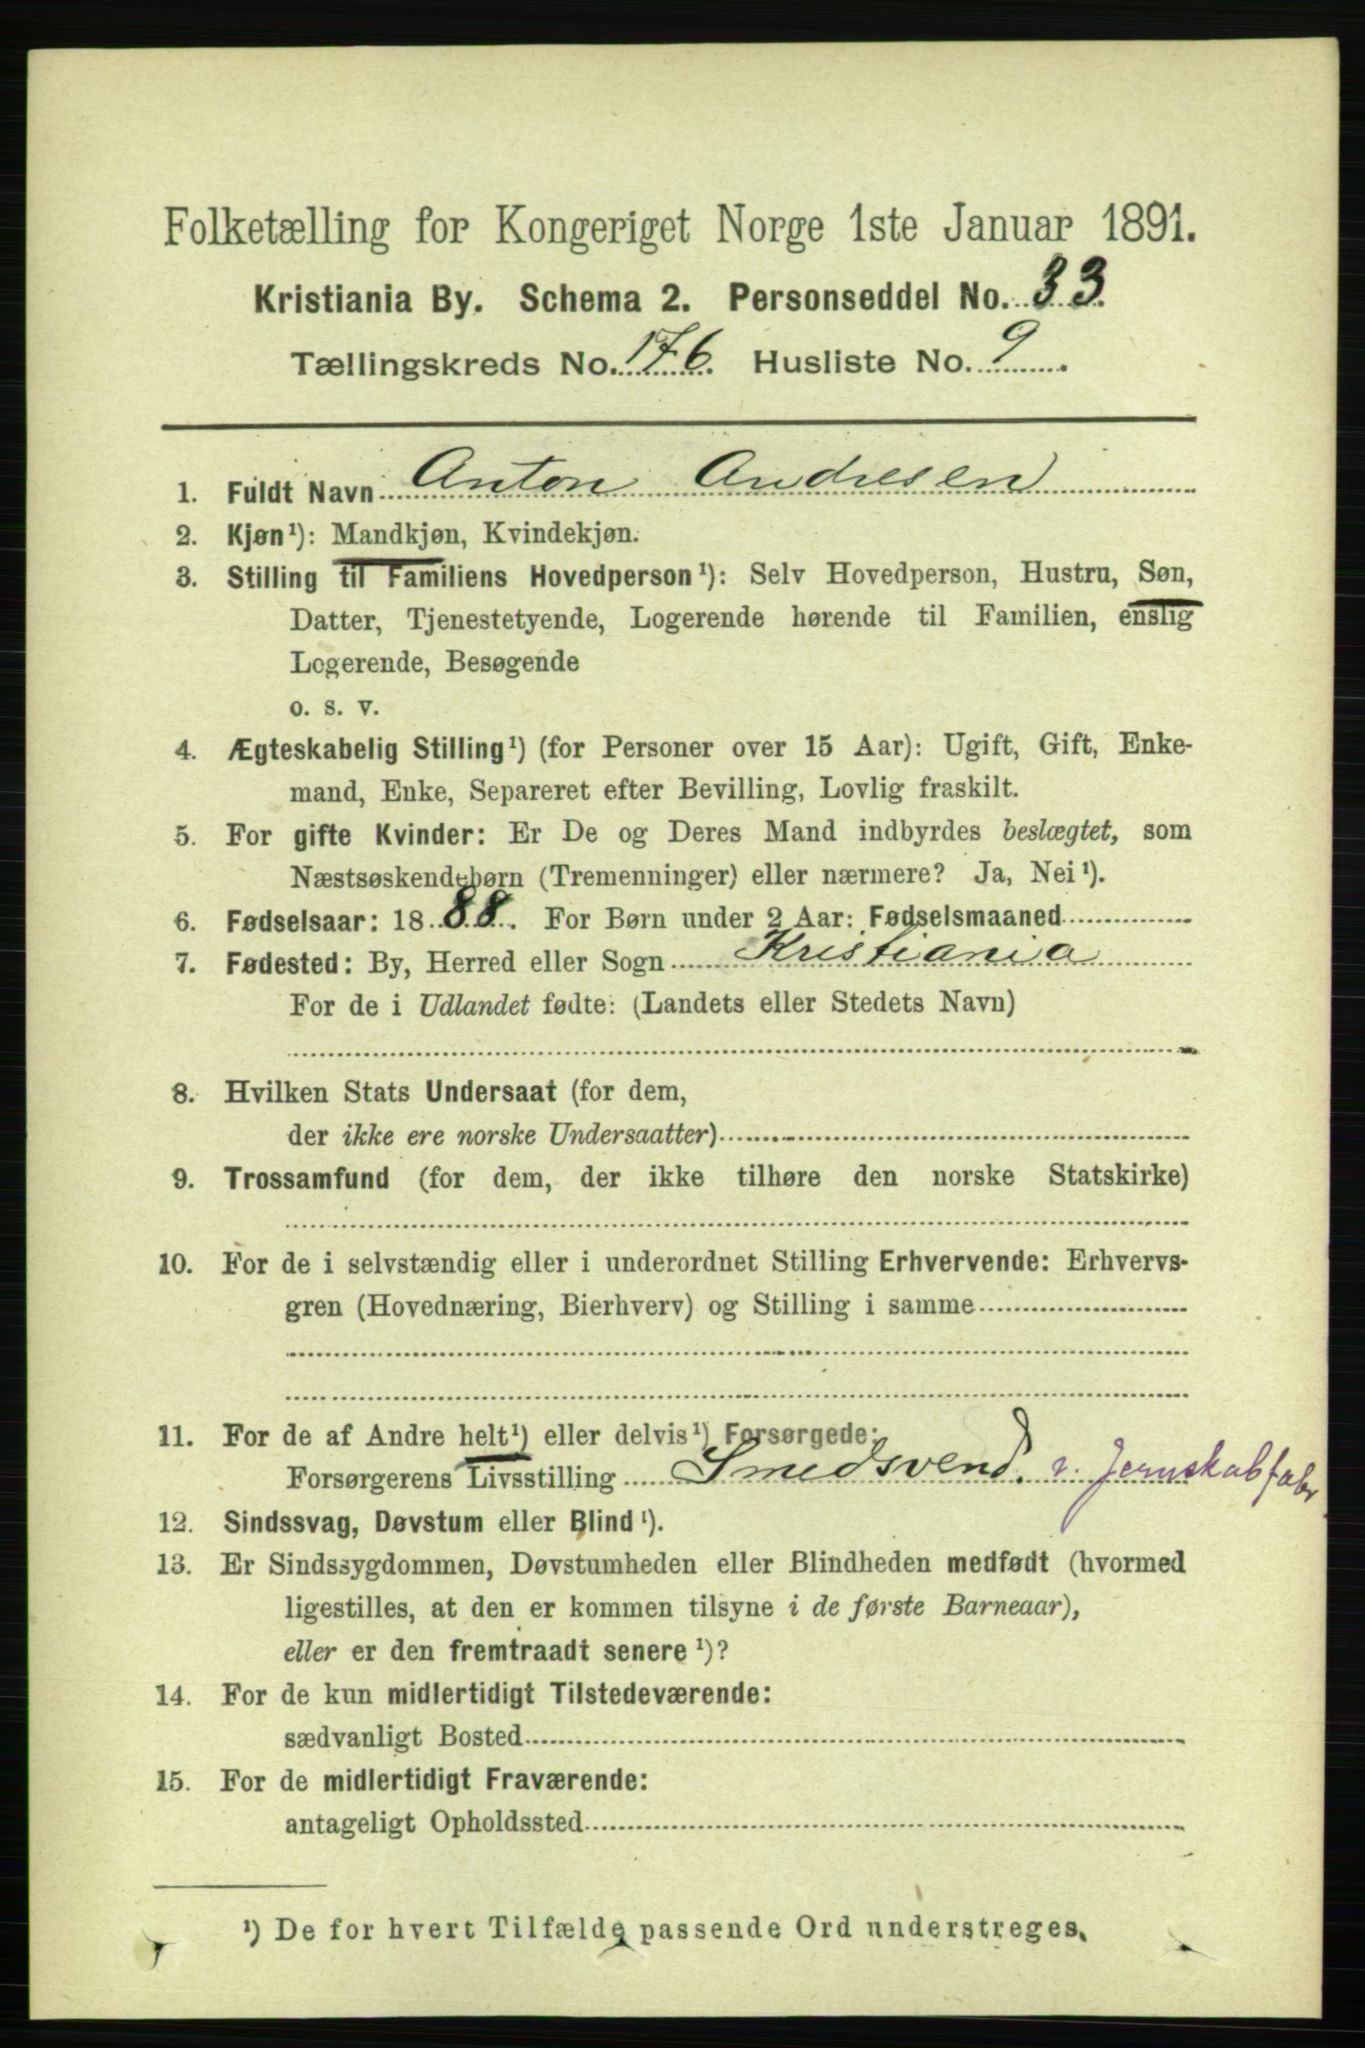 Folketælling for Kongeriget Norge 1ste Januar 1891.
Kristiania By. Schema 2. Personseddel No. 33.
Tællingskreds No. 176. Husliste No. 9.
1. Fuldt Navn Anton Andresen
2. Kjøn¹): Mandkjøn, Kvindekjøn.
3. Stilling til Familiens Hovedperson¹): Selv Hovedperson, Hustru, Søn,
Datter, Tjenestetyende, Logerende hørende til Familien, enslig
Logerende, Besøgende
o. s. v.
4. Ægteskabelig Stilling¹) (for Personer over 15 Aar): Ugift, Gift, Enke-
mand, Enke, Separeret efter Bevilling, Lovlig fraskilt.
5. For gifte Kvinder: Er De og Deres Mand indbyrdes beslægtet, som
Næstsøskendebørn (Tremenninger) eller nærmere? Ja, Nei¹).
6. Fødselsaar: 1888. For Børn under 2 Aar: Fødselsmaaned
7. Fødested: By, Herred eller Sogn Kristiania
For de i Udlandet fødte: (Landets eller Stedets Navn)
8. Hvilken Stats Undersaat (for dem,
der ikke ere norske Undersaatter)
9. Trossamfund (for dem, der ikke tilhøre den norske Statskirke)
10. For de i selvstændig eller i underordnet Stilling Erhvervende: Erhvervs-
gren (Hovednæring, Bierhverv) og Stilling i samme
11. For de af Andre helt¹) eller delvis¹) Forsørgede:
Forsørgerens Livsstilling Smedsvend. v. Jernskabfabr
12. Sindssvag, Døvstum eller Blind¹).
13. Er Sindssygdommen, Døvstumheden eller Blindheden medfødt (hvormed
ligestilles, at den er kommen tilsyne i de første Barneaar),
eller er den fremtraadt senere¹)?
14. For de kun midlertidigt Tilstedeværende:
sædvanligt Bosted
15. For de midlertidigt Fraværende:
antageligt Opholdssted
¹) De for hvert Tilfælde passende Ord understreges.